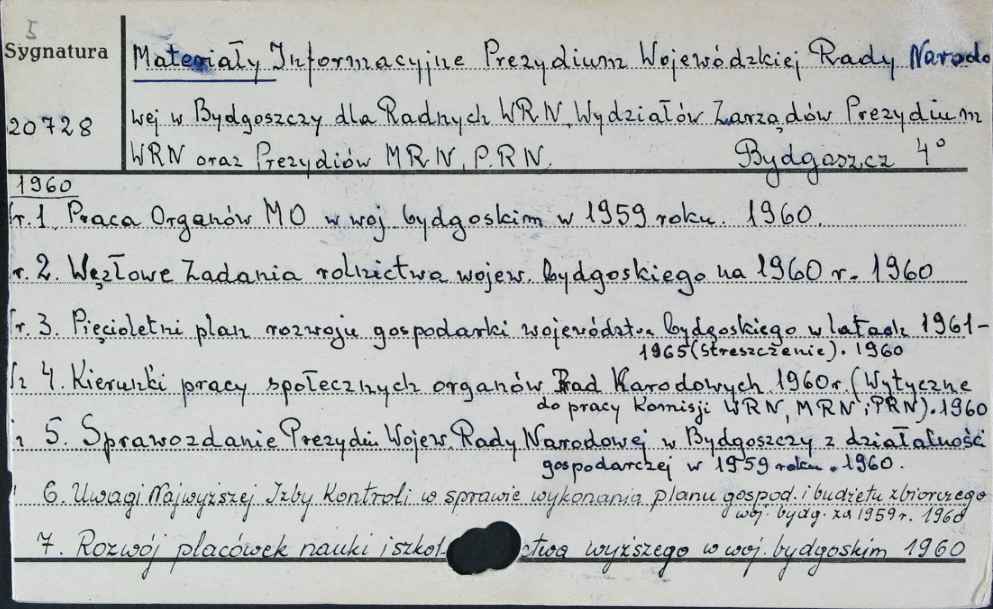 5
Sygnatura
20728
Materiały Informacyjne Prezydium Wojewódzkiej Rady Narodo
wej w Bydgoszczy dla Radnych WRN, Wydziałów Zarządów Prezydium
WRN oraz Prezydiów MRN, PRN. Bydgoszcz 4°
1960
r. 1. Praca Organów MO w woj. bydgoskim w 1959 roku. 1960.
r. 2. Węzłowe Zadania rolnictwa wojew. bydgoskiego na 1960 r. 1960
r. 3. Pięcioletni plan rozwoju gospodarki województwa bydgoskiego w latach 1961-
1965 (streszczenie). 1960
4. Kierunki pracy społecznych organów Rad Narodowych 1960 r. (Wytyczne
do pracy Komisji WRN, MRN i PRN). 1960
5. Sprawozdanie Prezydiu Wojew. Rady Narodowej w Bydgoszczy z działalność
gospodarczej w 1959 roku. 1960.
6. Uwagi Najwyższej Izby Kontroli w sprawie wykonania planu gospod. i budżetu zbiorczego
woj. bydg. za 1959 r. 1960
7. Rozwój placówek nauki i szkol ctwa wyższego w woj. bydgoskim 1960